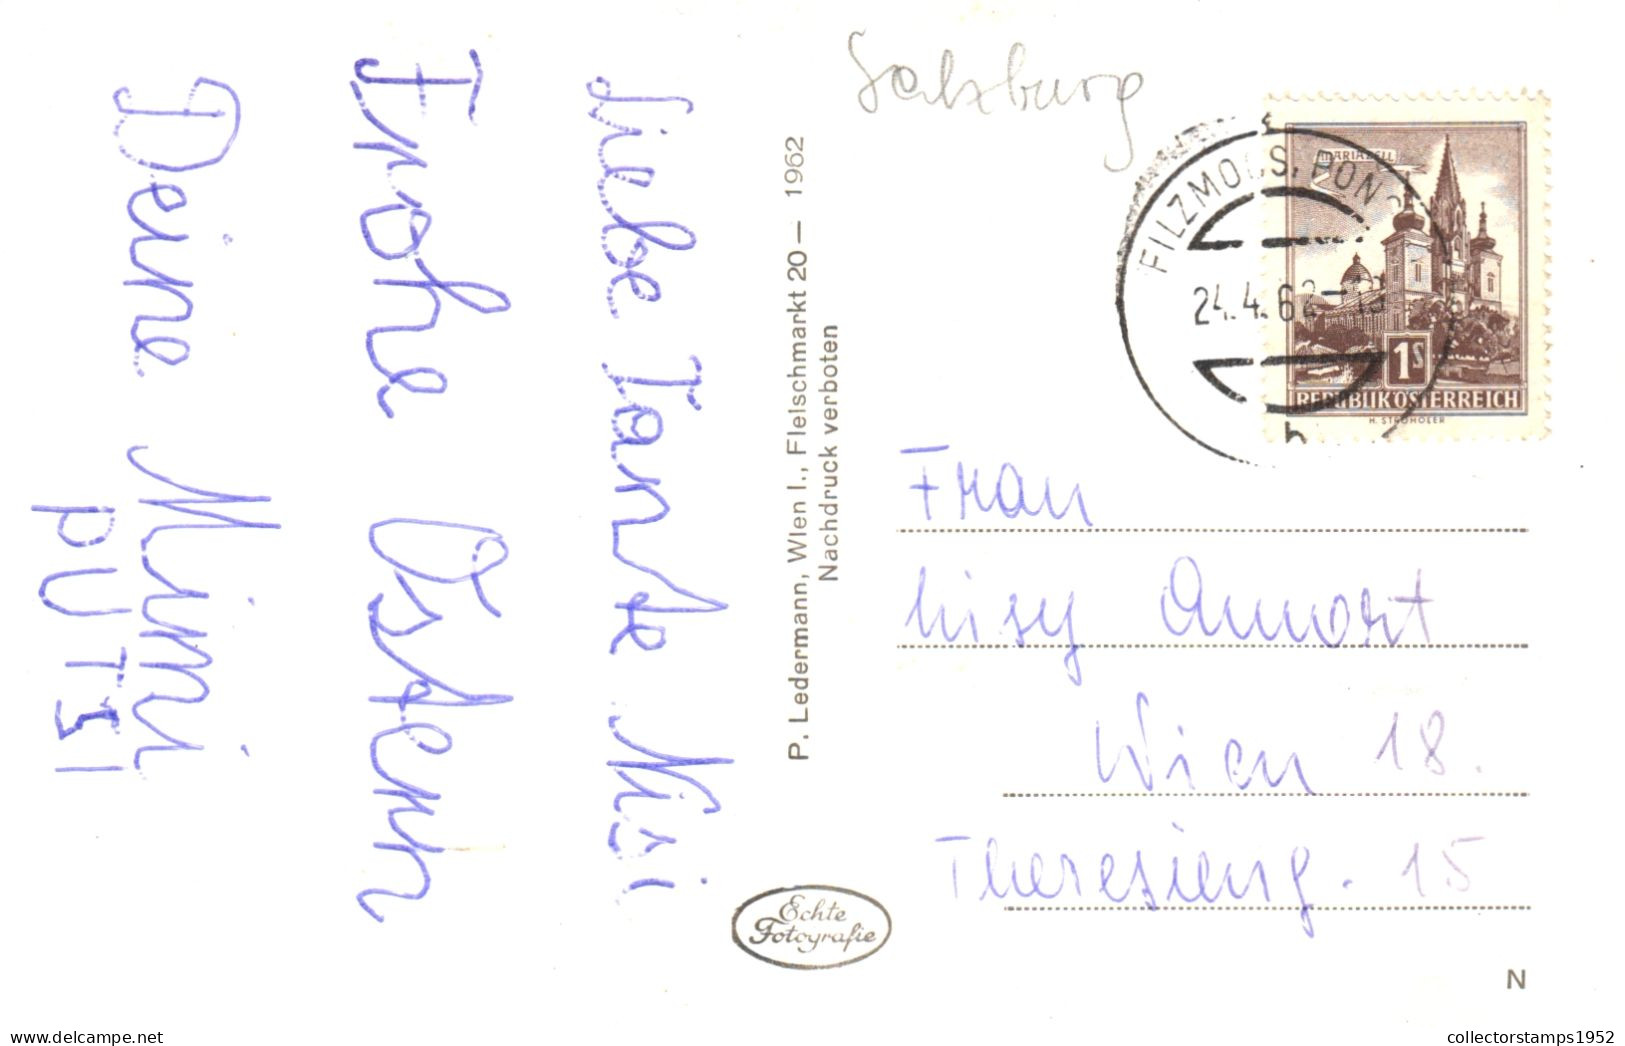 Liebe Tante Nisi
Frohe Ostern
Deine Mimi
PUTSI
P. Ledermann, Wien I., Fleischmarkt 20 — 1962
Nachdruck verboten
Echte
Fotografie
Salzburg
FILZMOOS, PON
24.4.62-18
b
MARIAZELL
1S
REPUBLIK ÖSTERREICH
H. STROHOFER
Frau
Lisy
Wien 18.
Theresieng. 15
N
delcampe.net
collectorstamps1952